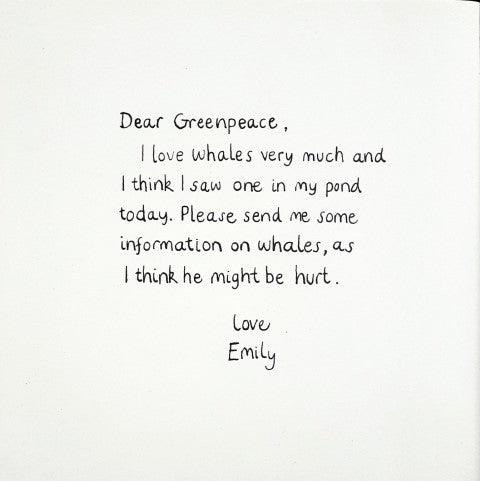 Dear Greenpeace,
I love whales very much and
I think I saw one in my pond
today. Please send me some
information on whales, as
I think he might be hurt.
Love
Emily